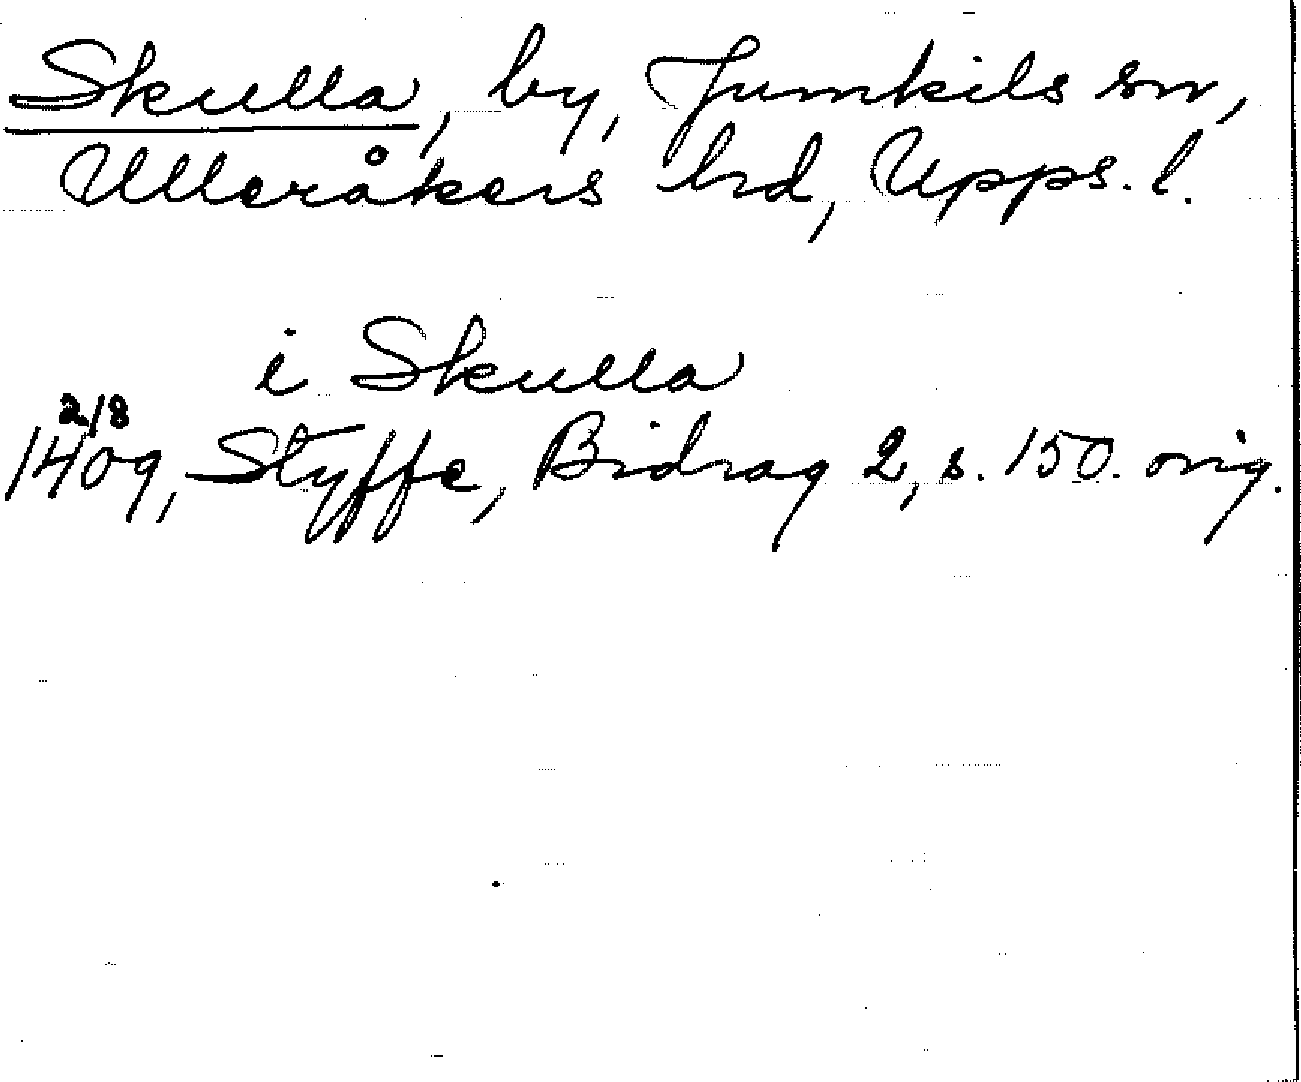 Skulla, by, Jumkils sn,
Ulleråkers hrd, Upps. l.
i Skulla
2/8
1409, Styffe, Bidrag 2, s. 150. orig.